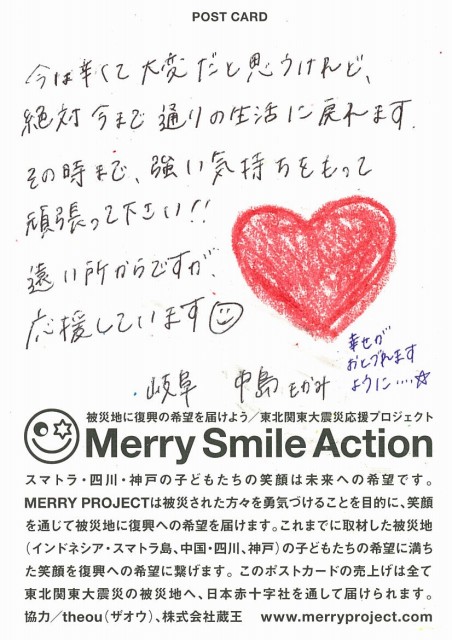 POST CARD
今は辛くて大変だと思うけれど、
絶対今まで通りの生活に戻れます.
その時まで、強い気持ちをもって
頑張って下さい!!
遠い所からですが、
応援しています☺
幸せが
おとづれます
ように‥‥☆
岐阜 中島 もかみ
被災地に復興の希望を届けよう/東北関東大震災応援プロジェクト
Merry Smile Action
スマトラ・四川・神戸の子どもたちの笑顔は未来への希望です。
MERRY PROJECTは被災された方々を勇気づけることを目的に、笑顔
を通じて被災地に復興への希望を届けます。これまでに取材した被災地
(インドネシア・スマトラ島、中国・四川、神戸)の子どもたちの希望に満ち
た笑顔を復興への希望に繋げます。このポストカードの売上げは全て
東北関東大震災の被災地へ、日本赤十字社を通して届けられます。
協力/theou(ザオウ)、株式会社蔵王 www.merryproject.com